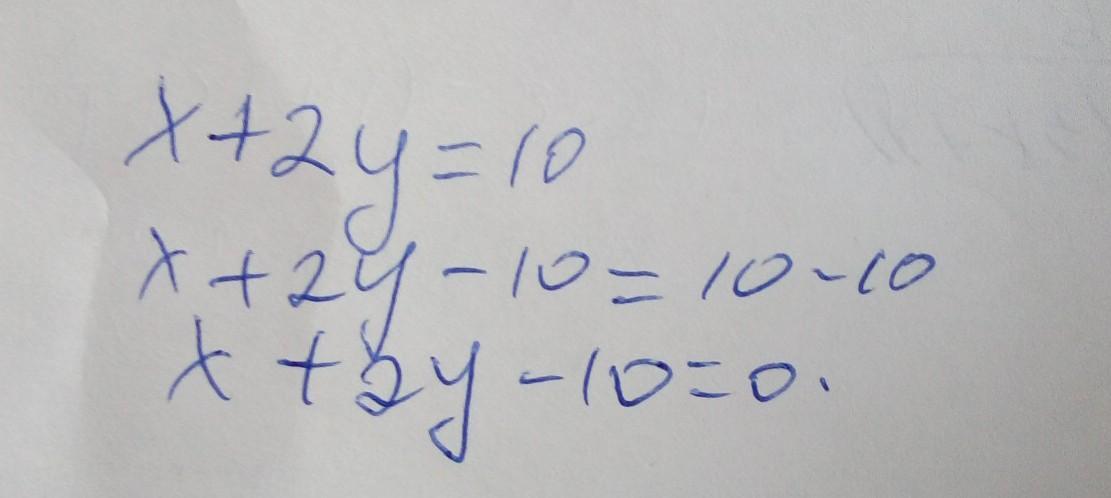 x+2y=10
x+2y-10=10-10
x+2y-10=0.